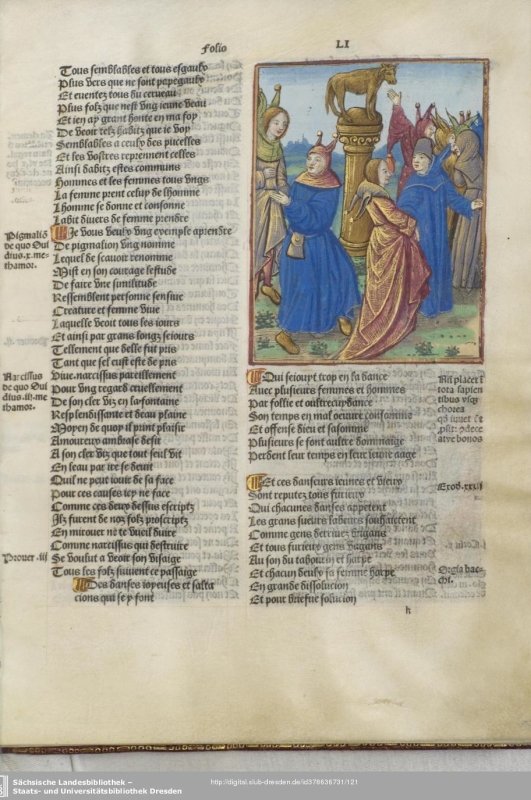 Folio
LI
Tous semblables et tous esgaulx
Plus vers que ne sont papegaulx
Et euentez tous du cerueau
Plus folz que nest vng ieune veau
Et ien ay grant honte en ma foy
De veoir telz habitz que ie voy
Semblables a ceulx des pucelles
Et les vostres reprennent celles
Ainsi dabitz estes communs
Hommes et les femmes tous vngs
La femme prent celuy de lhomme
Lhomme se donne et consonne
Labit diuers de femme prendre
Je vous veulx vng exemple aprendre
De pigmalion vng nomme
Lequel de scauoir renomme
Mist en son courage lestude
De faire vne similitude
Ressemblent personne sensiue
Creature et femme viue
Laquelle veoit tous les iours
Et ainsi par grans longz seiours
Tellement que delle fut pris
Tant que sel eust este de pris
Viue. narcissus pareillement
Pour vng regard cruellement
De son cler viz en la fontaine
Resplendissante et deau plaine
Moyen de quoy il print plaisir
Amoureux ambrase desir
A son cler viz que tout seul vit
En leau par ire se deuit
Quil ne peut iouir de sa face
Pour ces causes iey ne face
Comme ces deux dessus escriptz
Ilz furent de noz folz proscriptz
En mirouer ne te vueil duire
Comme narcissus qui destruire
Se voulut a veoir son visaige
Tous les folz suiuent ce passaige
Des danses ioyeuses et salta
cions qui se y font
Pigmaliō
de quo Oui
dius.x.me-
thamor.
Narcissus
de quo Oui
dius.iii.me
thamor.
Prouer .iii
Qui seiouyt trop en la dance
Auec plusieurs femmes et hommes
Par follie et oultrecuydance
Son temps en mal oeuure consomme
Et offense dieu et sa somme
Plusieurs se font aultre dommaige
Perdent leur temps en leur ieune aage
Et ces danseurs ieunes et vieux
Sont reputez tous furieux
Qui chacunes danses appetent
Les grans sueurs labeurs souhaictent
Comme gens
Et tous furieux gens vagans
Au son du tabourin et harpe
Et chacun deulx sa femme harpe
En grande dissolucion
Et pour briefue solucion
Nil placet i
tota sapien
tibus
chorea
atque bonos
Exod. xxxii
Orgia bac-
chi.
h
Sächsische Landesbibliothek –
Staats- und Universitätsbibliothek Dresden
http://digital.slub-dresden.de/id378636731/121